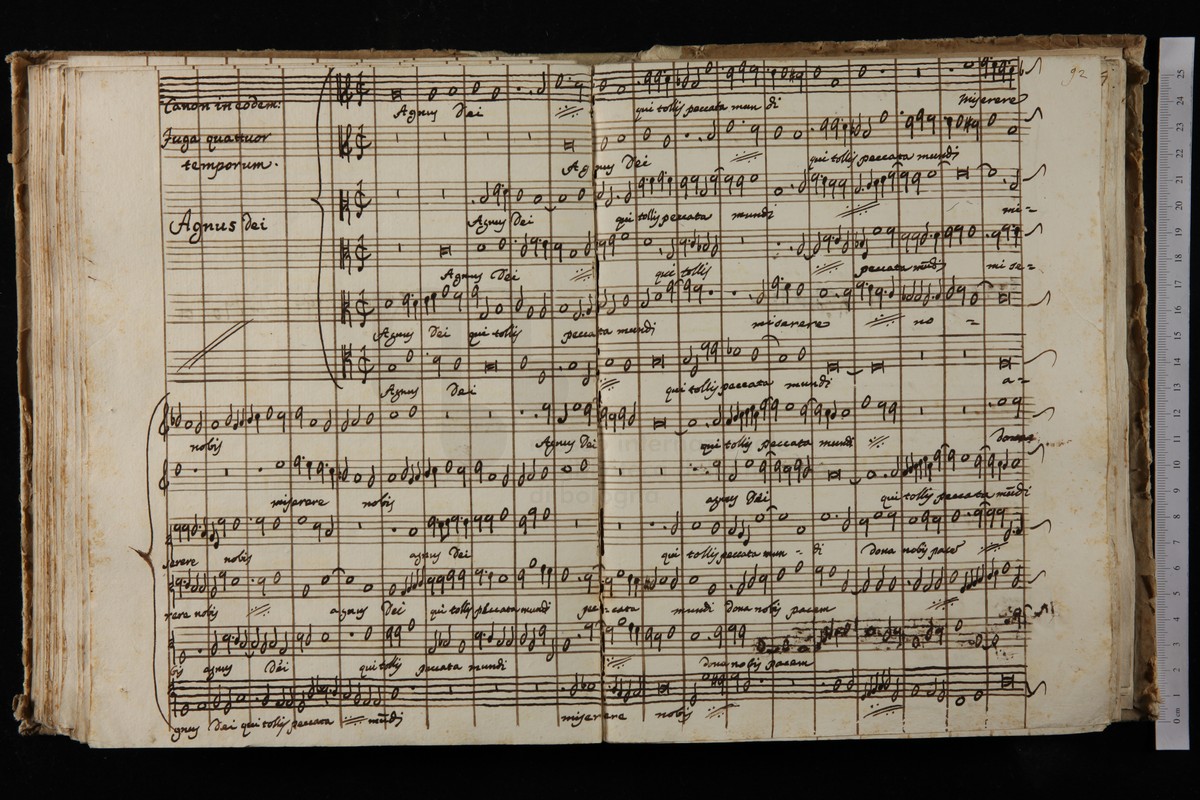 92
Canon in eodem:
Agnus Dei qui tollis peccata mun di miserere
Fuga quattuor
temporum.
Agnus Dei qui tollis peccata mundi
Agnus Dei
Agnus Dei qui tollis peccata mundi mi=
Agnus Dei qui tollis peccata mūdi mi se=
Agnus Dei qui tollis peccata mundi miserere no =
Agnus Dei qui tollis peccata mundi a=
nobis Agnus Dei qui tollis peccata mundi dona
miserere nobis agnus Dei qui tollis peccata mūdi
serere nobis agnus Dei qui tollis peccata mun = di dona nobis pacē
rere nobis agnus Dei qui tollis peccata mundi pec-cata mundi dona nobis pacem
bis agnus Dei qui tollis peccata mundi dona nobis pacem
gnus Dei qui tollis peccata mūdi miserere nobis
0 cm 1 2 3 4 5 6 7 8 9 10 11 12 13 14 15 16 17 18 19 20 21 22 23 24 25
di bologna